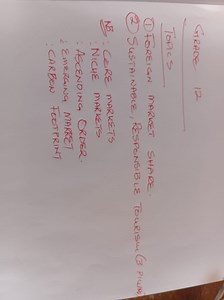 GRADE 12
TOPICS
① FOREIGN MARKET SHARE
② SUSTAINABLE, RESPONSIBLE TOURISM (3 PILLAR
NB : CORE MARKETS
: NICHE MARKETS
: ASCENDING ORDER
: EMERGING MARKET
: CARBON FOOTPRINT